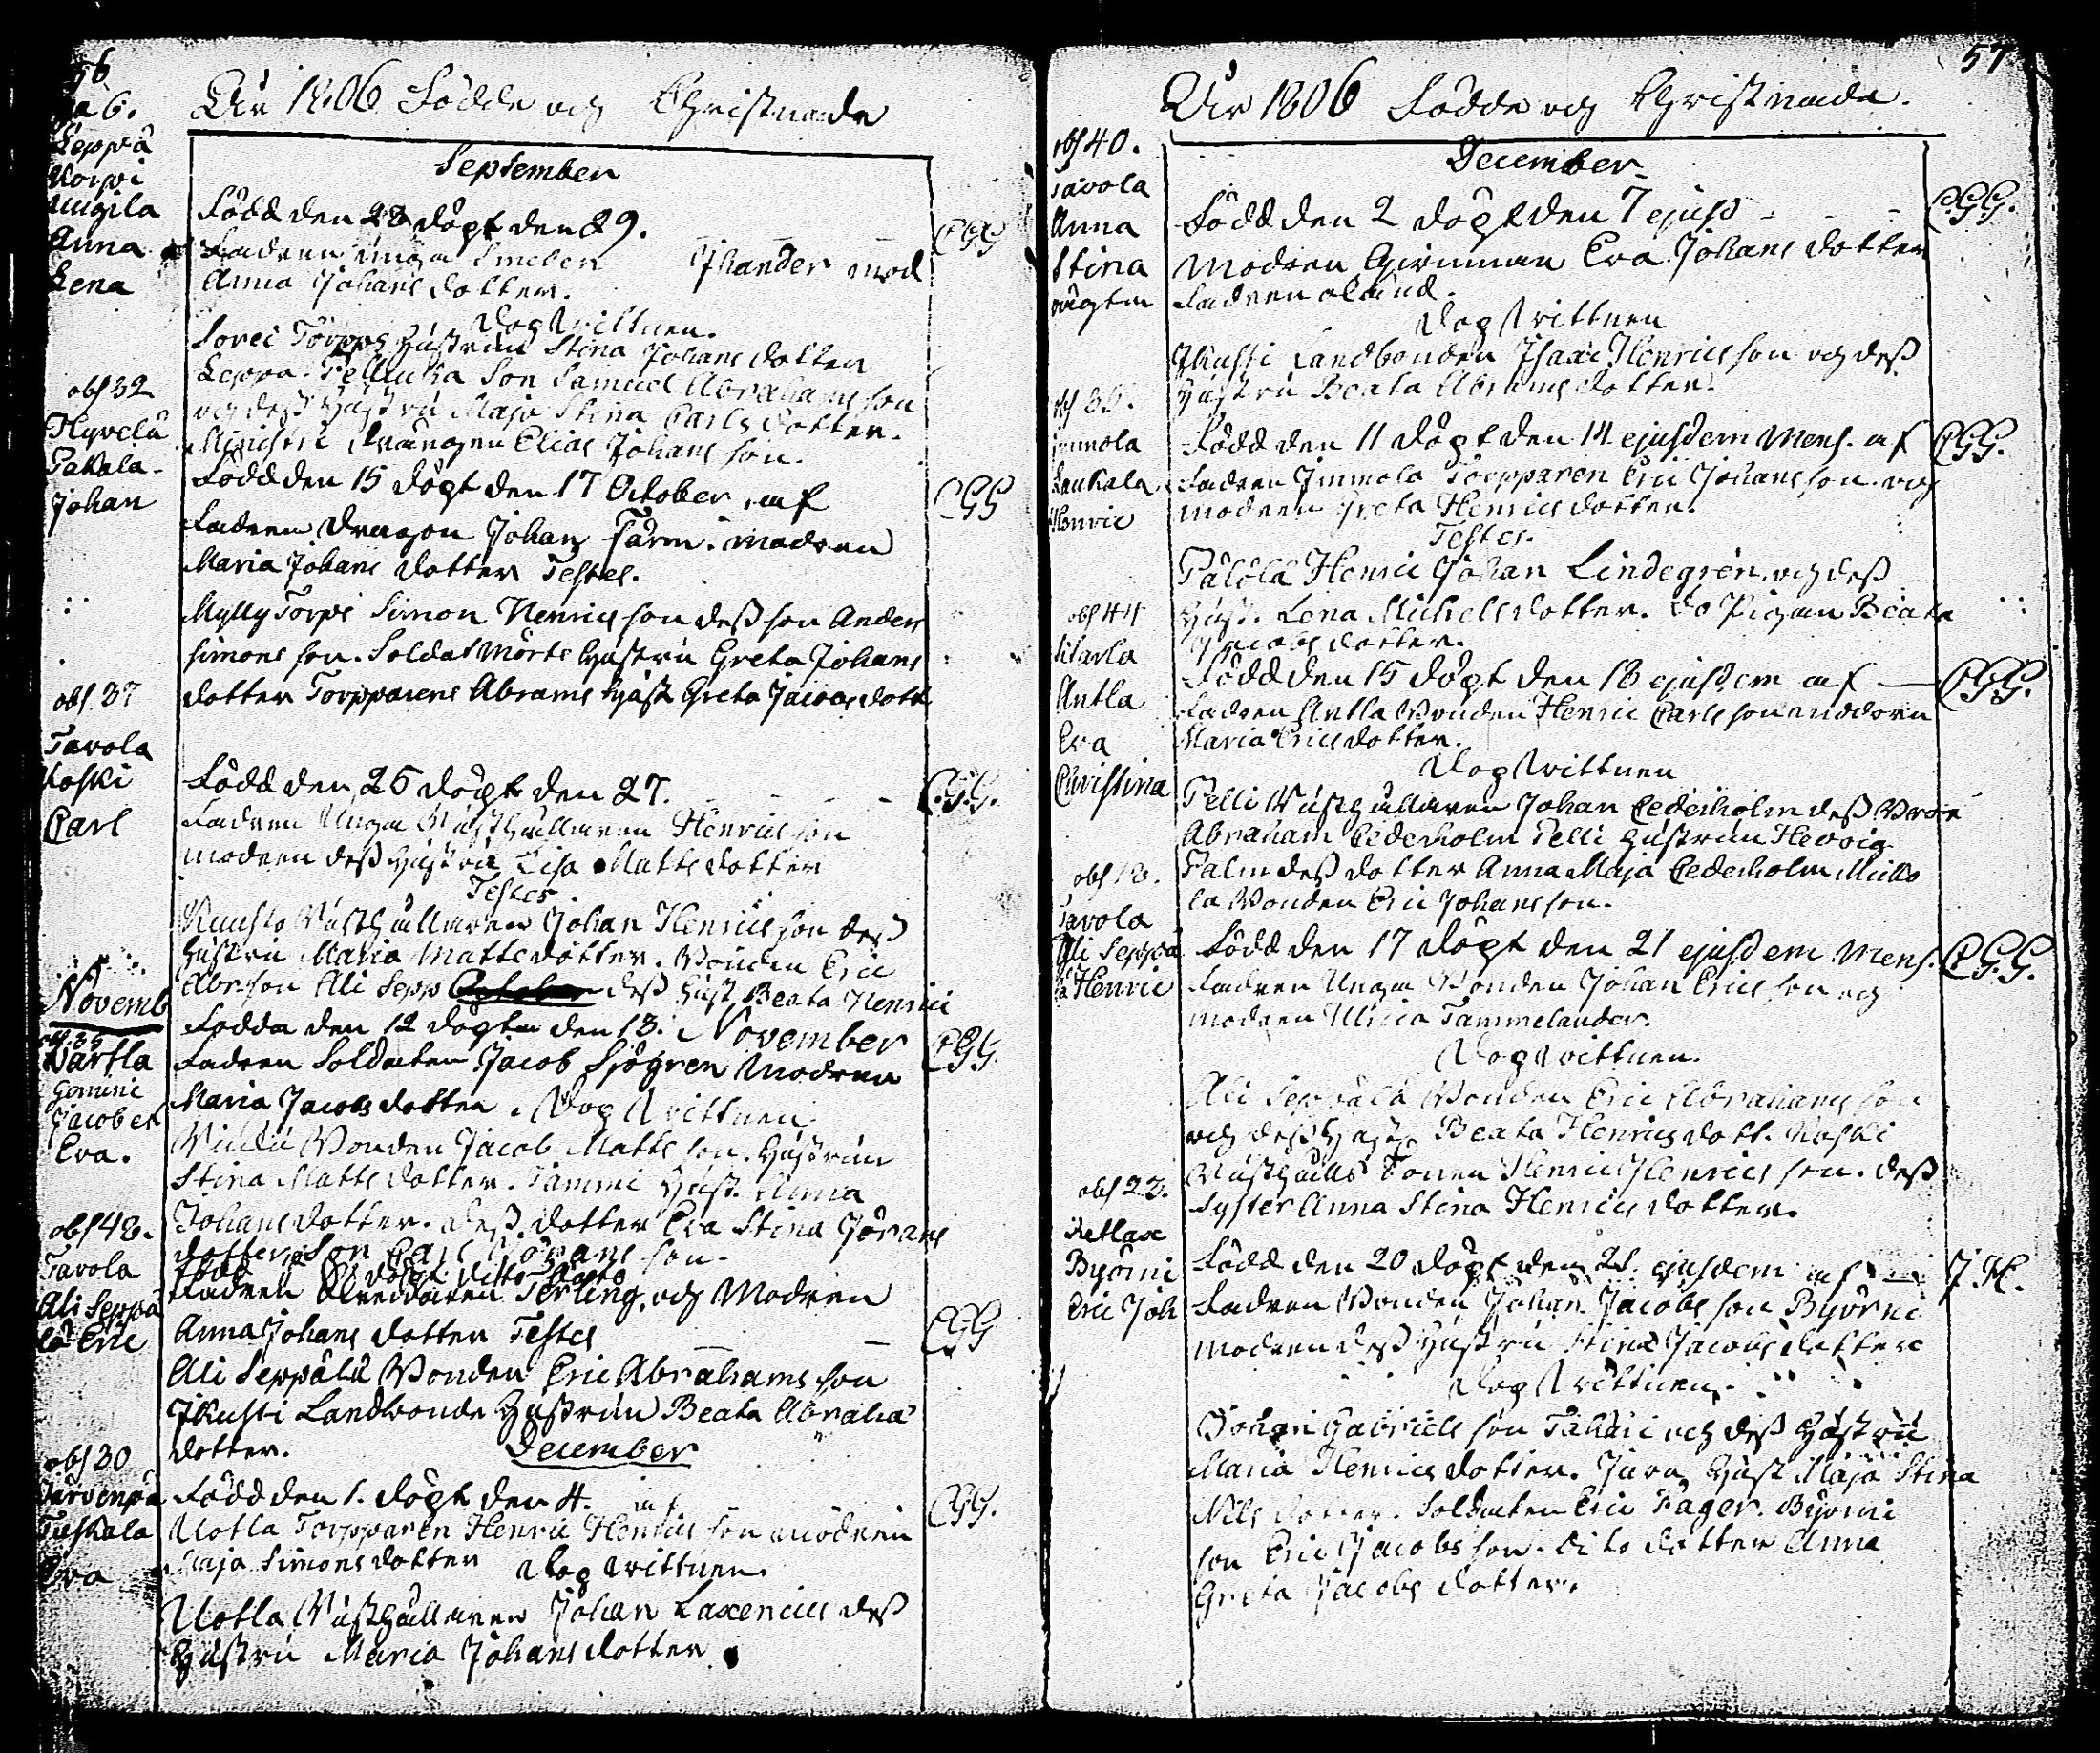 56
Åhr 1806 Födde och Christnade
September
Leppä
Korpi
Anna
Lena
Född den 28 döpt den 29.
CGG
Fadren Smeden Jhander mod
Anna Johans dotter.
Dop Wittnen.
Torps Hustrun Stina Johans dotter
Son Samuel Abrahams son
och deß Hustru Maja Stina Carls dotter.
Drängen Elias Johans son.
obs 32
Hyvelä
Pakala
Johan
Född den 15 döpt den 17 October af
CGG
Fadren Dragon Johan Farm. modren
Maria Johans dotter Testes.
Mylly Torps Simon Henrics son deß son Anders
Simons son. Soldat Mörts Hustru Greta Johans
dotter Torpparens Abrams Hust Greta Jacobs dott
obs 37
Tavola
Koski
Carl
Född den 25 döpt den 27.
C.G.G.
Fadren Unga Rusthållaren Henrics son
modren deß Hustru Lisa Matts dotter
Testes.
Rusthållaren Johan Henrics son deß
Hustru Maria Matts dotter. Bonden Eric
Abr.son Ali Sepp deß Hust Beata Henrici
Novemb
Födda den 12 döpta den 13. November
CGG.
Wartla
Jacob et
Eva.
Fadren Soldaten Jacob Sjögren Modren
Maria Jacobs dotter. Dop Wittnen
Bonden Jacob Matts son. Hustrun
Stina Matts dotter. Tammi Hust. Anna
Johans dotter. deß dotter Eva Stina Görans
dotter Son Carl Görans son.
obs 48.
Tavola
Ali Seppä
lä Eric
Fadren Terling. och Modren
Anna Johans dotter Testes
CGG
Ali Seppälä Bonden Eric Abrahams son
Jkusti Landbonde Hustrun Beata Abraha
dotter.
December
obs 30
Järvenpä
Tuskala
Eva
Född den 1. döpt den 4. af
CGG.
Uotla Torpparen Henric Henrics son modren
Maja Simons dotter Dop Wittnen.
Uotla Rusthållaren Johan Laxenius deß
Hustru Maria Johans dotter
57
Åhr 1806 Födde och Christnade.
December
obs 40.
Tavola
Anna
Stina
Född den 2 döpt den 7 ejusd
CGG.
Modren Qwinnan Eva Johans dotter
Fadren okänd.
Dop Wittnen
Jkusti Landbonden Isaac Henrics son och deß
Hustru Beata Abrams dotter.
Jmmola
Laukala
Henric
Född den 11 döpt den 14 ejusdem Mens. af
CGG.
Fadren Jmmola Torpparen Eric Johans son. och
modren Greta Henrics dotter.
Testes.
Pälölä Henric Johan Lindegrén. och deß
Hust. Lena Michels dotter. do Pigan Beata
Jacobs dotter.
obs 44
Antla
Eva
Christina
Född den 15 döpt den 18 ejusdem af
CGG.
Fadren Antla Bonden Henric Carls son modren
Maria Erics dotter.
Dop Wittnen
Pelli Rusthållaren Johan Cederholm deß Bror
Abraham Cederholm Pelli Hustrun Hedvig
Palm deß dotter Anna Maja Cederholm Mickо
la Bonden Eric Johans son.
Tavola
Ali Seppä
lä Henric
Född den 17 döpt den 21 ejusdem Mens.
CGG.
Fadren Unga Bonden Johan Erics son och
modren Ulrica Tammelander.
Dop Wittnen.
Ali Seppälä Bonden Eric Abrahams son
och deß Hust. Beata Henrics dott. Koski
Rusthålls Sonen Henric Henrics son. deß
Syster Anna Stina Henrics dotter.
obs 23.
Ketlax
Byörni
Eric Joh
Född den 20 döpt den 21. ejusdem af
J.H.
Fadren Bonden Johan Jacobs son Byörni
modren deß Hustru Stina Jacobs dotter
Dop Wittnen.
Johan Gabriels son och deß Hustru
Maria Henrics dotter. Hust Maja Stina
Nils dotter. Soldaten Eric Fager. Byörni
son Eric Jacobs son. dito dotter Anna
Greta Jacobs dotter.